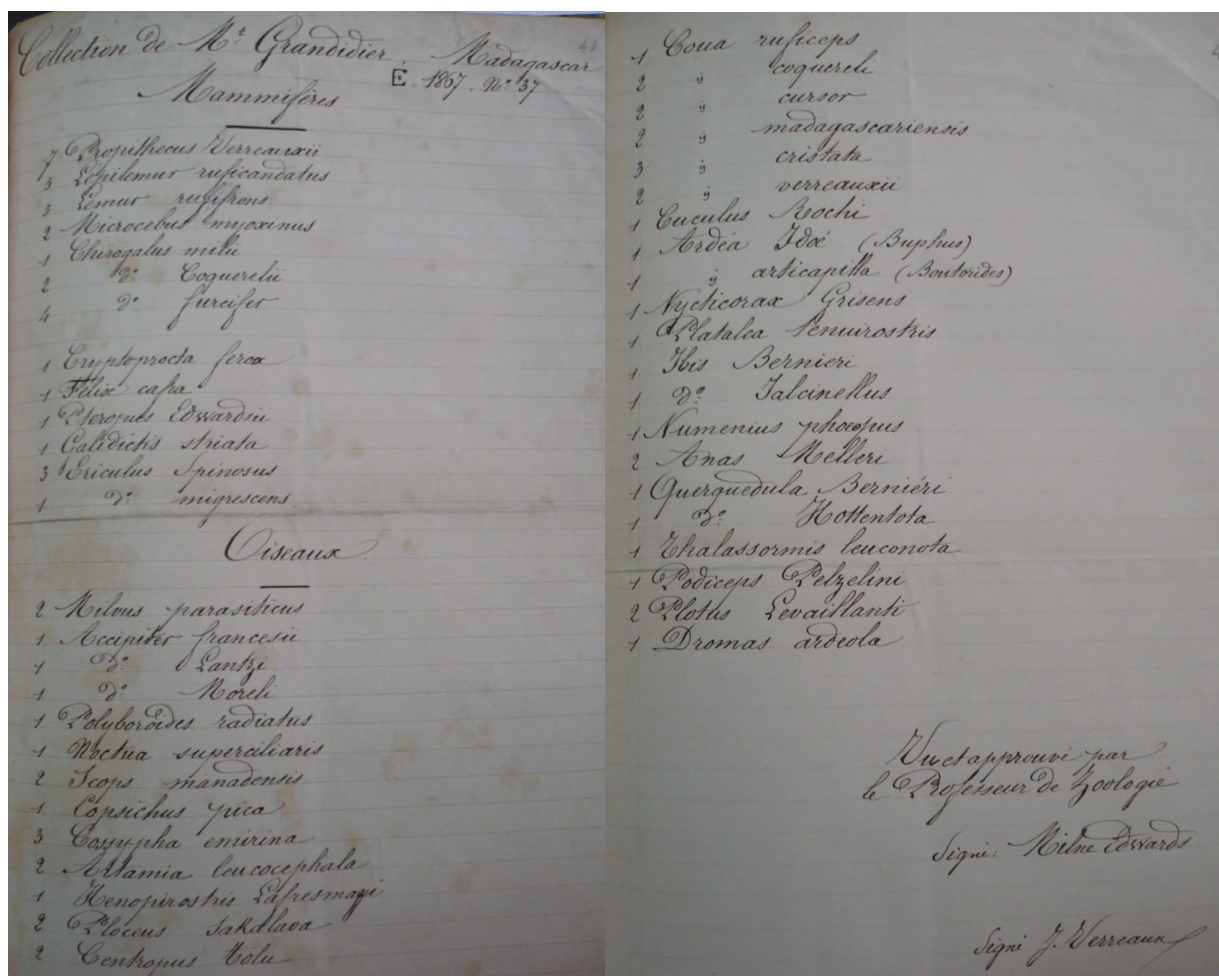 Collection de Mr. Grandidier. Madagascar
E. 1867. No. 37
Mammifères
7 Propithecus Verreauxii
3 Lepilemur ruficandatus
3 Lemur rufifrons
2 Microcebus myoxinus
1 Chirogalus milii
2 do. Coquerelii
4 do furcifer
1 Cryptoprocta ferox
1 Felix cafra
1 Pteropus Edwardsii
1 Galidictis striata
3 Ericulus Spinosus
1 do. nigrescens
Oiseaux
2 Milvus parasiticus
1 Accipiter francesii
1 do. Lantzi
1 do. Moreli
1 Polyboroides radiatus
1 Noctua superciliaris
2 Scops manadensis
1 Copsichus pica
3 Cossypha emirina
2 Artamia leucocephala
1 Xenopirostris Lafresnayi
2 Ploceus Sakalava
2 Centropus tolu
41
1 Coua ruficeps
2 " coquereli
2 " cursor
2 " madagascariensis
3 " cristata
2 " verreauxii
1 Cuculus Rochi
1 Ardea Idoé (Buphus)
1 " articapilla (Boutorides)
1 Nycticorax Grisens
1 Platalea tenuirostris
1 Ibis Bernieri
1 do. Falcinellus
1 Numenius phoeopus
2 Anas Melleri
1 Querquedula Berniéri
1 do. Hottentota
1 Thalassormis leuconota
1 Podiceps Pelzelini
2 Plotus Levaillanti
1 Dromas ardeola
Vu et approuvé par
le Professeur de Zoologie
Signé: Milne Edwards
Signé J. Verreaux